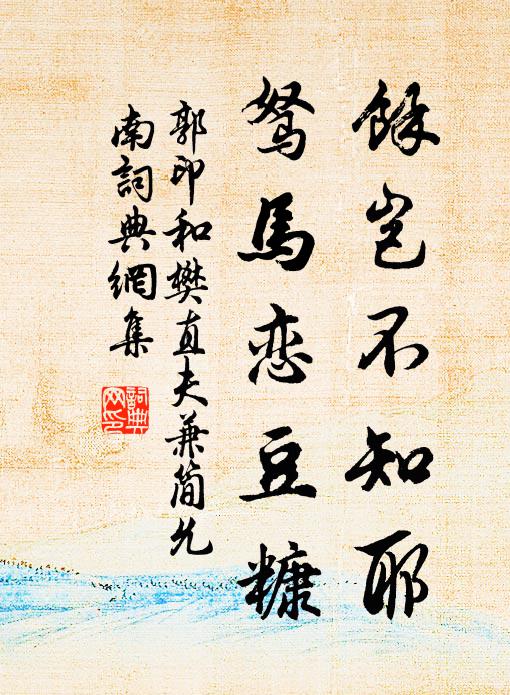 餘岂不知耶
駑馬恋豆糠
郭印和樊直夫兼简允
南詞典網集
詞典
网印